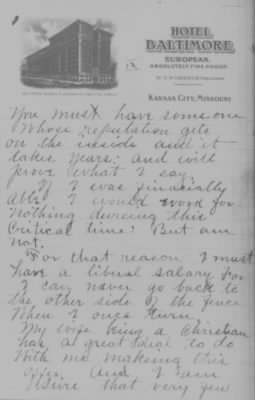 HOTEL
BALTIMORE
EUROPEAN.
ABSOLUTELY FIRE PROOF
KANSAS CITY, MISSOURI
You must have some one
Whose reputation gits
on the inside and it
takes years: and will
prove what I say,
If I was finacially
Able I would work for
Nothing dureing this
Critical time: But am
not.
For that reason I must
have a liberal salary for
I can never go back to
the other side of the fence
When I once turn,
My wife being a Christian
has a great deal to do
With me makeing this
offer. And I am
Sure that very few